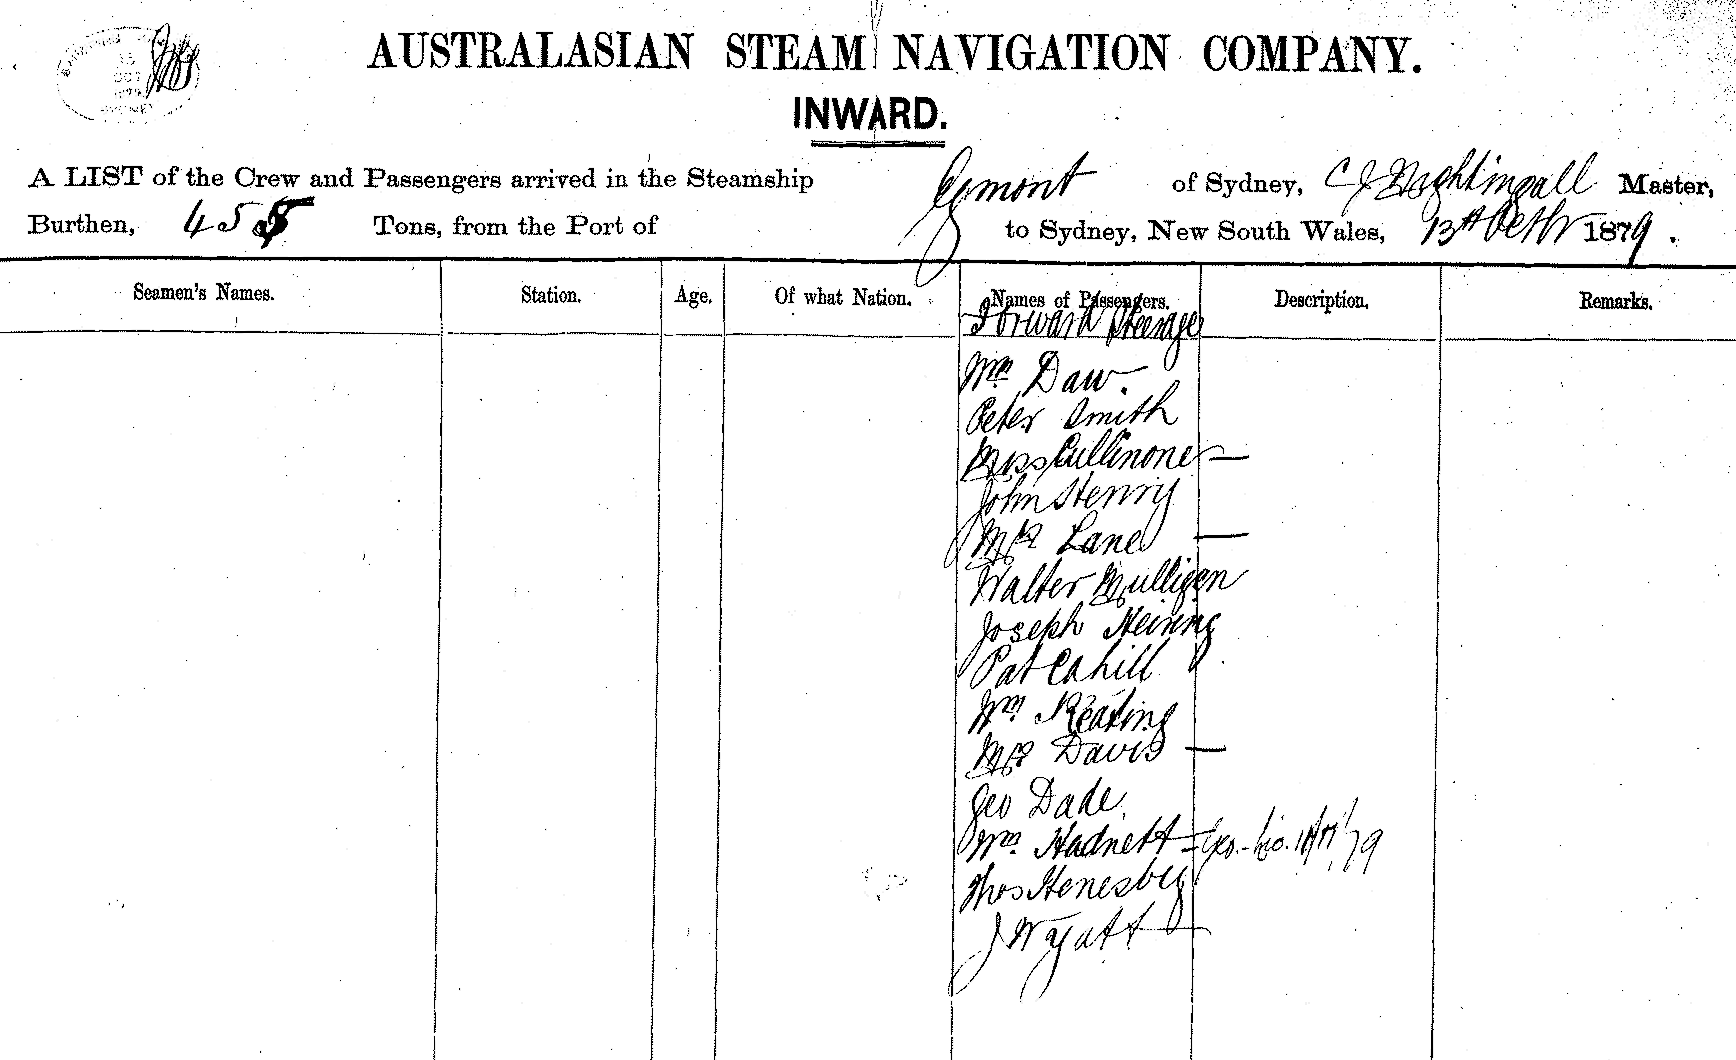 AUSTRALASIAN STEAM NAVIGATION COMPANY.
INWARD.
A LIST of the Crew and Passengers arrived in the Steamship Egmont of Sydney, C J Nightingall Master,
Burthen, 455 Tons, from the Port of to Sydney, New South Wales, 13th Octbr 1879.
Seamen's Names. Station. Age. Of what Nation. Names of Passengers. Description. Remarks.
Forward Steerage
Wm Daw.
Peter Smith
Miss Cullinone —
John Henry
Mrs Lane —
Walter Mulligan
Joseph Heining
Pat Cahill
Wm Keating
Mrs Davis —
Geo Dade.
Wm. Hadnett
Thos Henesbey
J Wyatt